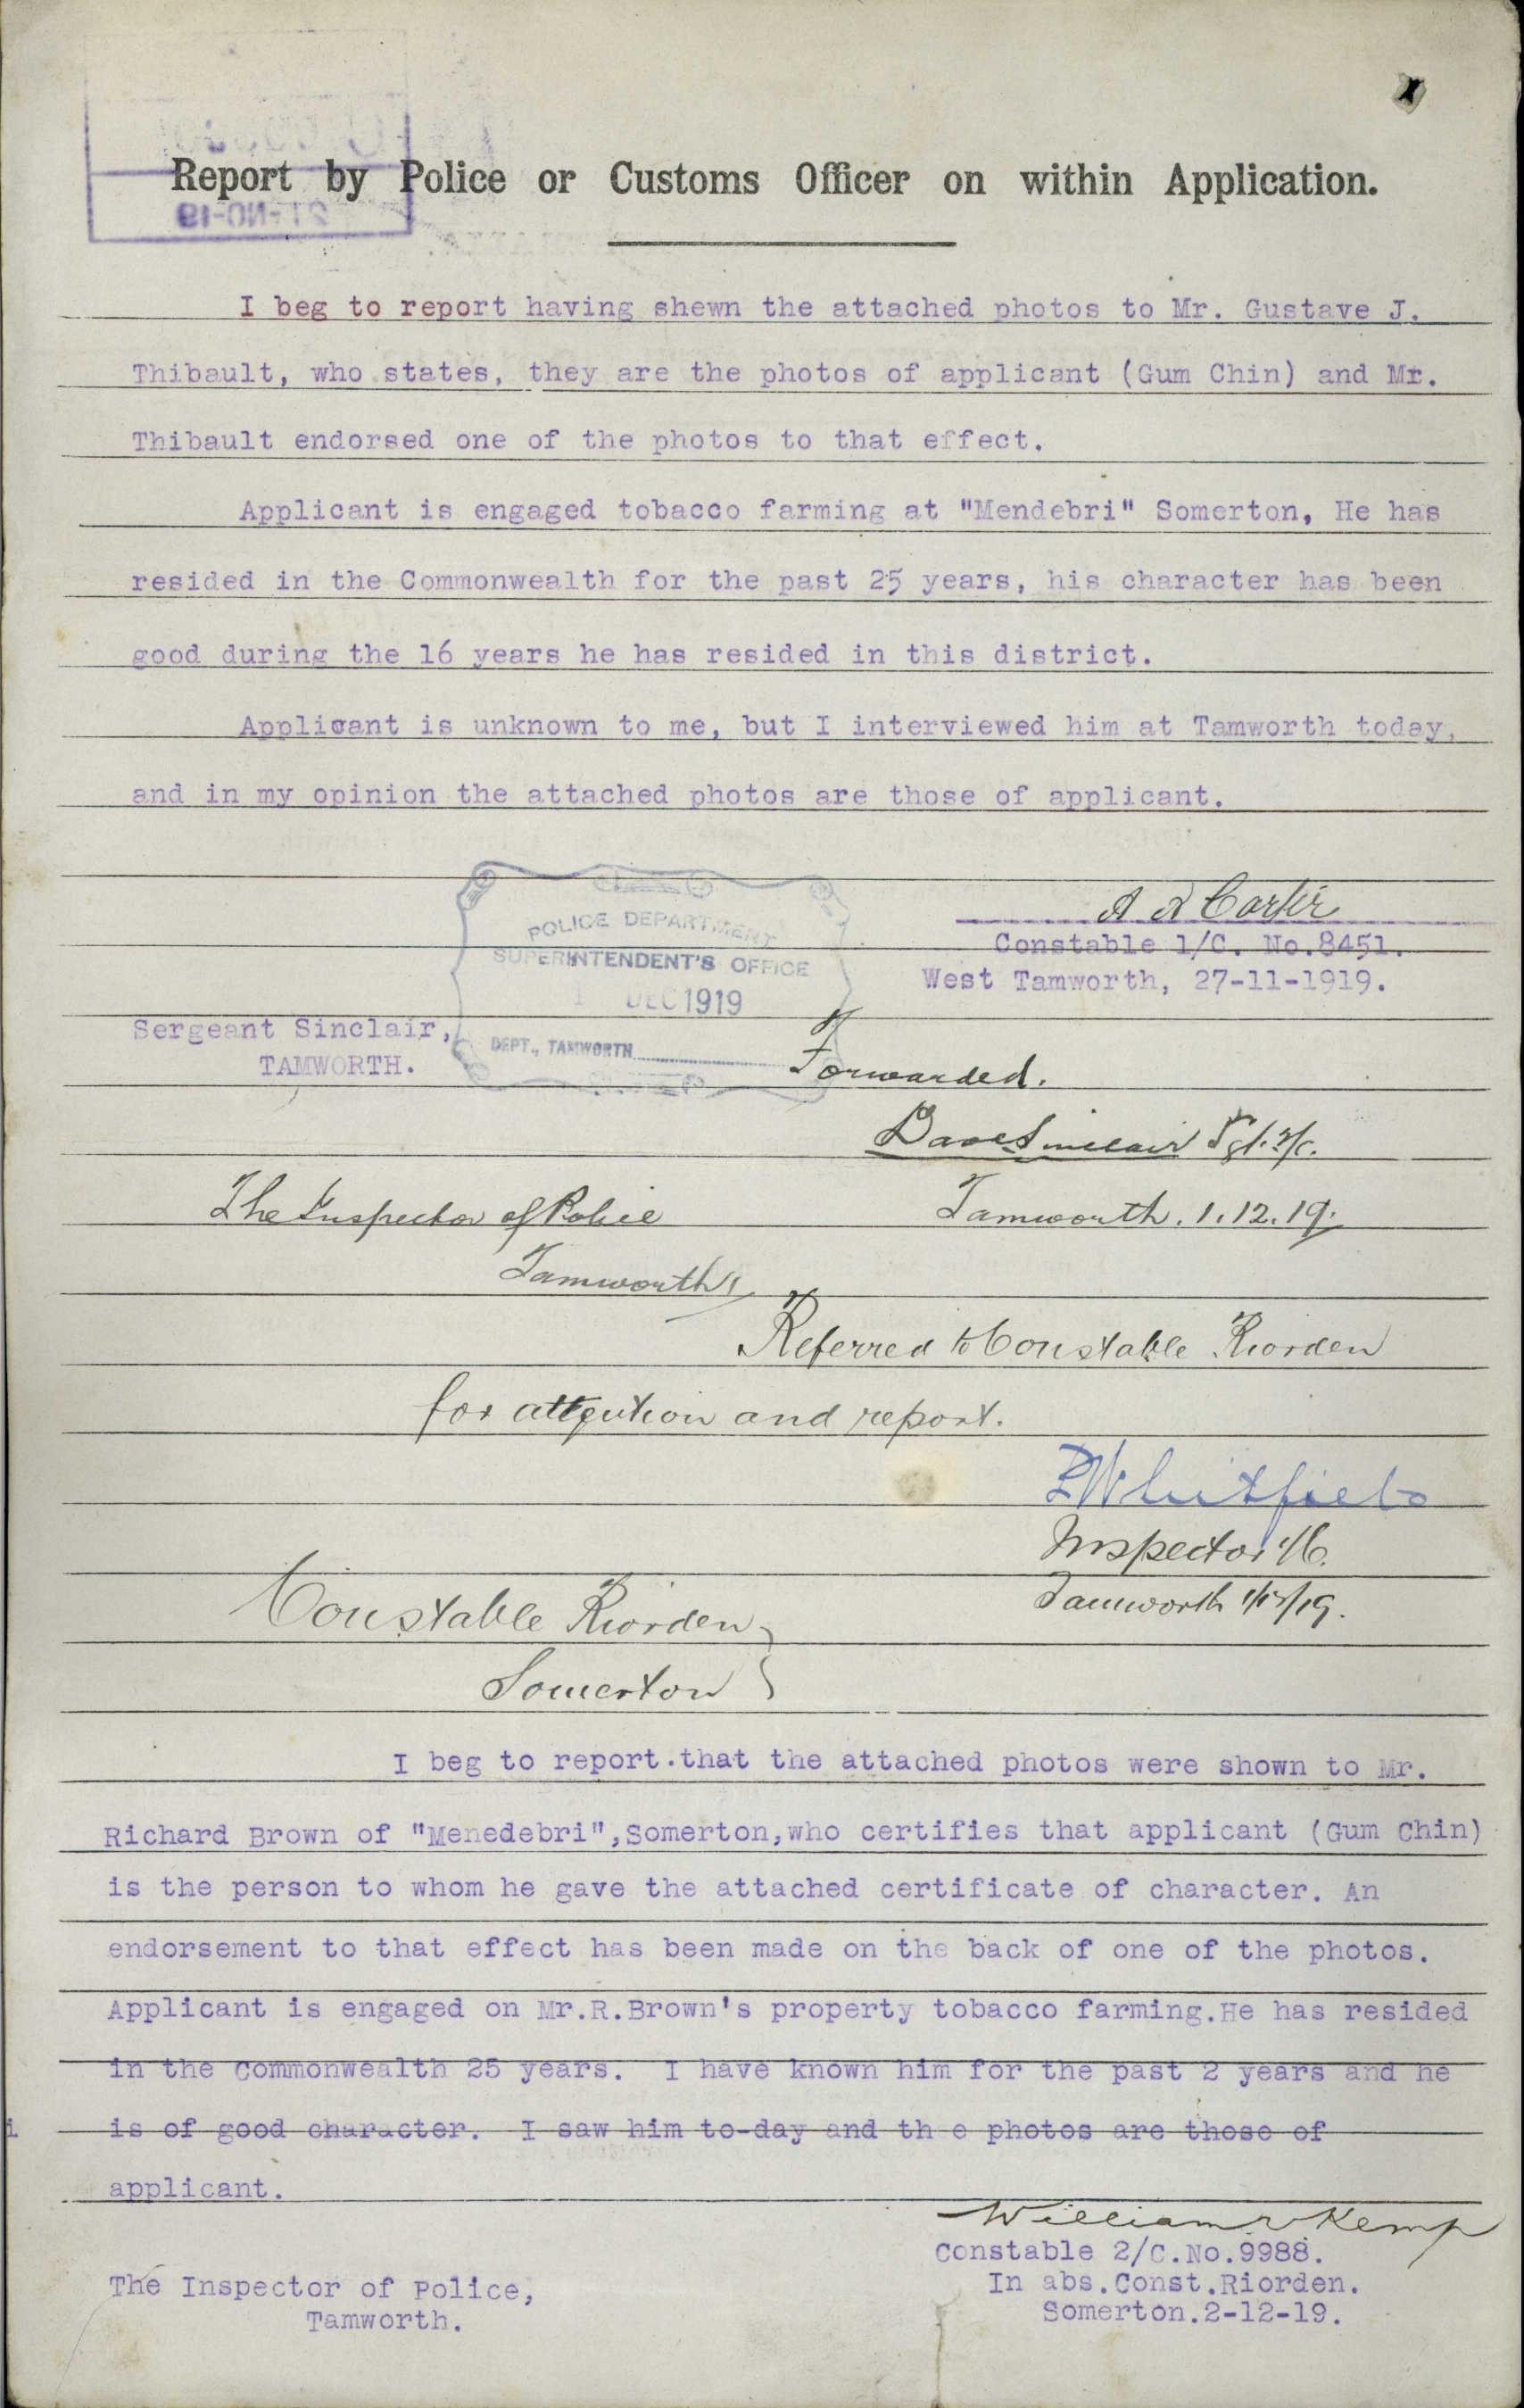 Report by Police or Customs Officer on within Application.
21-NO-19
I beg to report having shewn the attached photos to Mr. Gustave J.
Thibault, who states, they are the photos of applicant (Gum Chin) and Mr.
Thibault endorsed one of the photos to that effect.
Applicant is engaged tobacco farming at "Mendebri" Somerton, He has
resided in the Commonwealth for the past 25 years, his character has been
good during the 16 years he has resided in this district.
Applicant is unknown to me, but I interviewed him at Tamworth today,
and in my opinion the attached photos are those of applicant.
Constable 1/C. No.8451.
West Tamworth, 27-11-1919.
POLICE DEPARTMENT
SUPERINTENDENT'S OFFICE
1 DEC 1919
DEPT., TAMWORTH
Sergeant Sinclair,
TAMWORTH.
Forwarded.
Sinclair Sgt.
Tamworth. 1.12.19.
The Inspector of Police
Tamworth
Referred to Constable Riorden
for attention and report.
Whitfield
Inspector
Tamworth 1/12/19.
Constable Riorden
Somerton
I beg to report.that the attached photos were shown to Mr.
Richard Brown of "Menedebri",Somerton,who certifies that applicant (Gum Chin)
is the person to whom he gave the attached certificate of character. An
endorsement to that effect has been made on the back of one of the photos.
Applicant is engaged on Mr.R.Brown's property tobacco farming.He has resided
in the Commonwealth 25 years. I have known him for the past 2 years and he
is of good character. I saw him to-day and th e photos are those of
applicant.
William Kemp
Constable 2/C.No.9988.
In abs.Const.Riorden.
Somerton.2-12-19.
The Inspector of Police,
Tamworth.